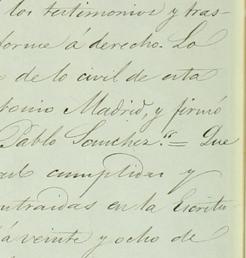 los testimonios y tras-
forme á derecho. Lo
de lo civil de esta
tonio Madrid, y firmó
Pablo Sanchez." = Que
cumplidas y
ntraidas en la Escritu-
á veinte y ocho de